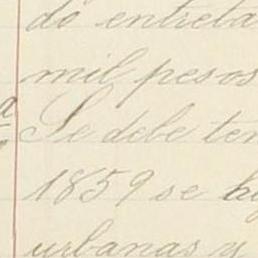 do entreta
mil pesos
a Se debe ten
1859 se h
urbanas y